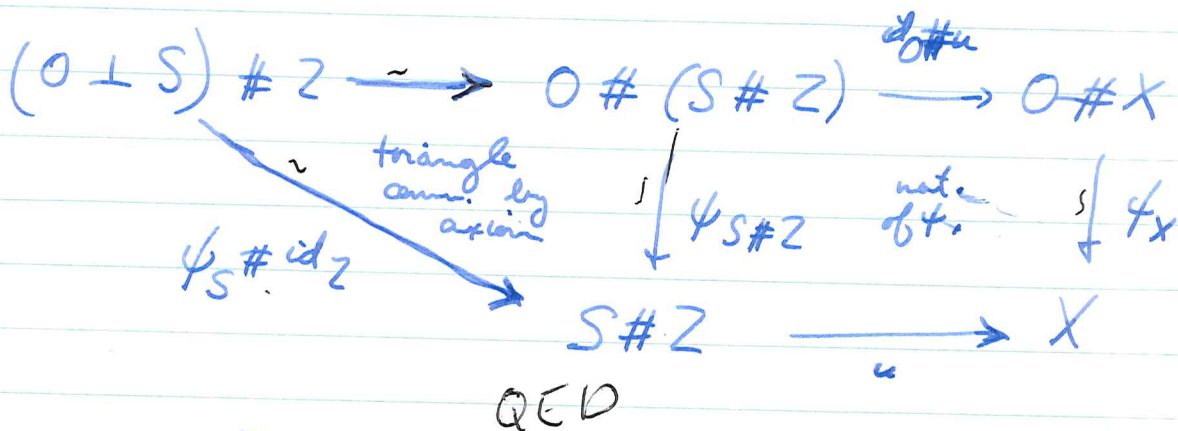 id_0#u
(0 ⊥ S) # Z ~→ 0 # (S # Z) → 0 # X
triangle comm. by axiom
~
ψ_S # id_Z
∫ ψ_S#Z
nat. of ψ.
∫ ψ_X
S # Z → X
u
QED